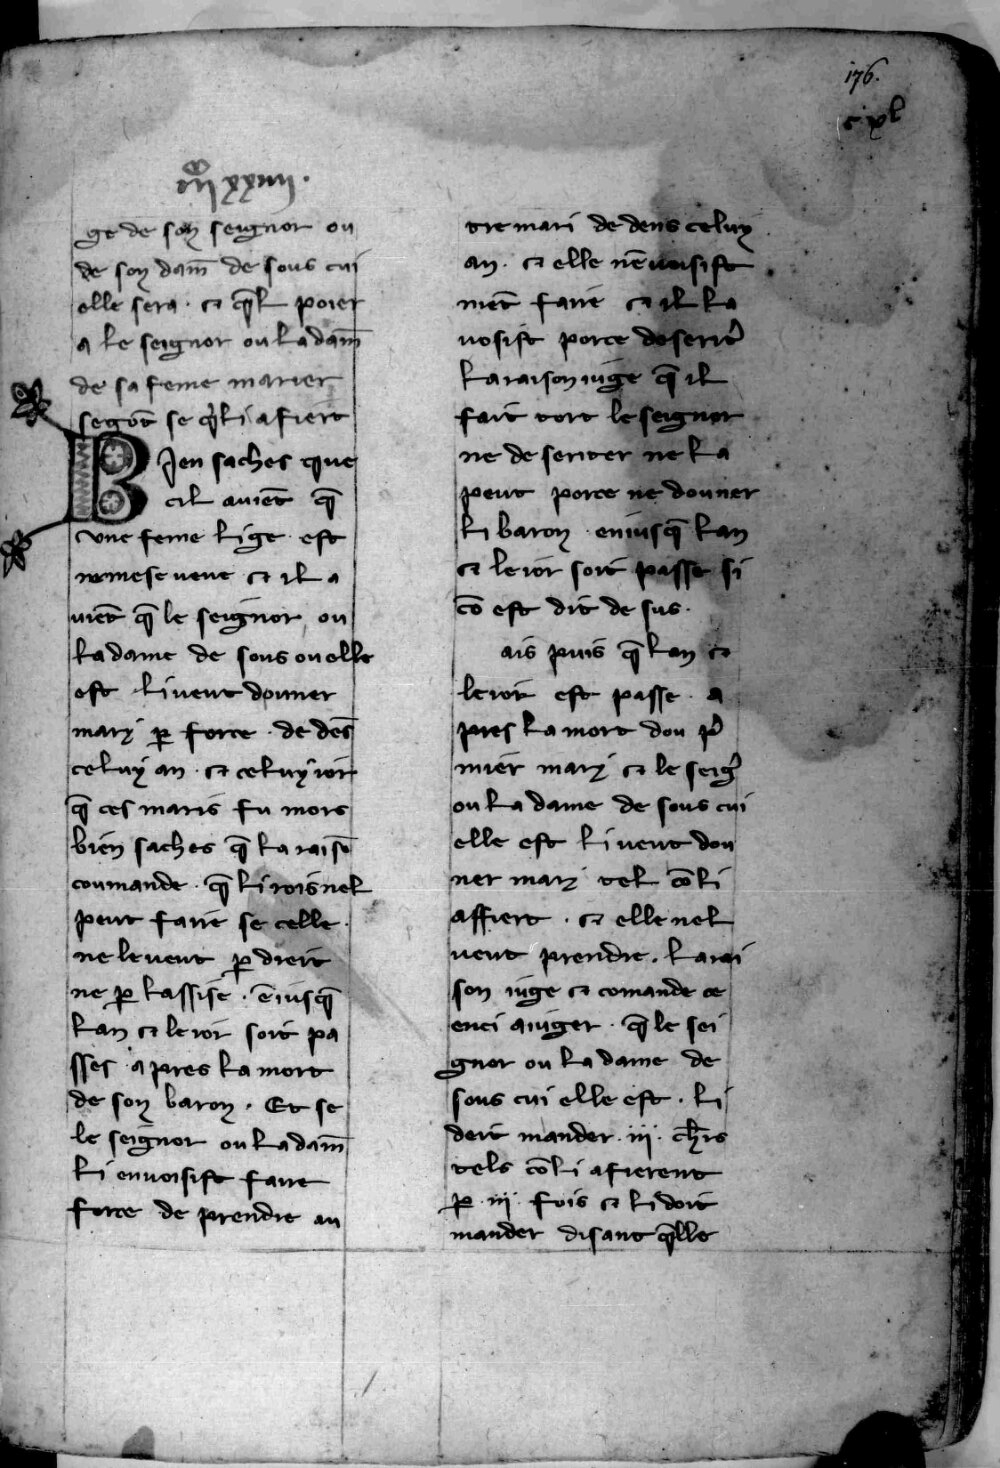 176.
cxl
ge de son seignor ou
de son dam̄ de sous cui
elle sera · et q̄l poier
a le seignor ou la dam̄
de sa feme marier
segōt se q̄ li afiert
Bien saches que
cil avient q̄
une feme lige · est
remese veve et il a
viēt q̄ le seignor ou
la dame de sous ou elle
est · li veut donner
mary p̱ force · de dēs
celuy an · et celuy ior
q̄ ces maris fu mors
bien saches q̄ la raisō
coumande · q̄ li rois nel
peut faire se celle ·
ne le veut p̱ dreit
ne p̱ lassise · ēiusq̄
lan et le ior soit pa
sses · apres la mort
de son baron · Et se
le seignor ou la dam̄
li en vosist faire
force de prendre au
tre mari de dens celuy
an · et elle nē vosist
niēt faire et il la
vosist porce deserit̄
la raison iuge q̄ il
fait tort le seignor
ne deseriter ne la
peut porce ne donner
li baron · eniusq̄ lan
et le ior soit passe si
cō est dit de sus ·
ais puis q̄ lan et
le ior est passe · a
pres la mort dou p̄
mier mary et le seiḡ
ou la dame de sous cui
elle est li veut don
ner mary tel cō li
affiert · et elle nel
veut prendre · la rai
son iuge et comande ce
enci a iuger · q̄ le sei
gnor ou la dame de
sous cui elle est · li
deit mander · iij · chr̄s
tels cō li afierent
p̱ · iij · fois et li doit
mander disant q̄lle